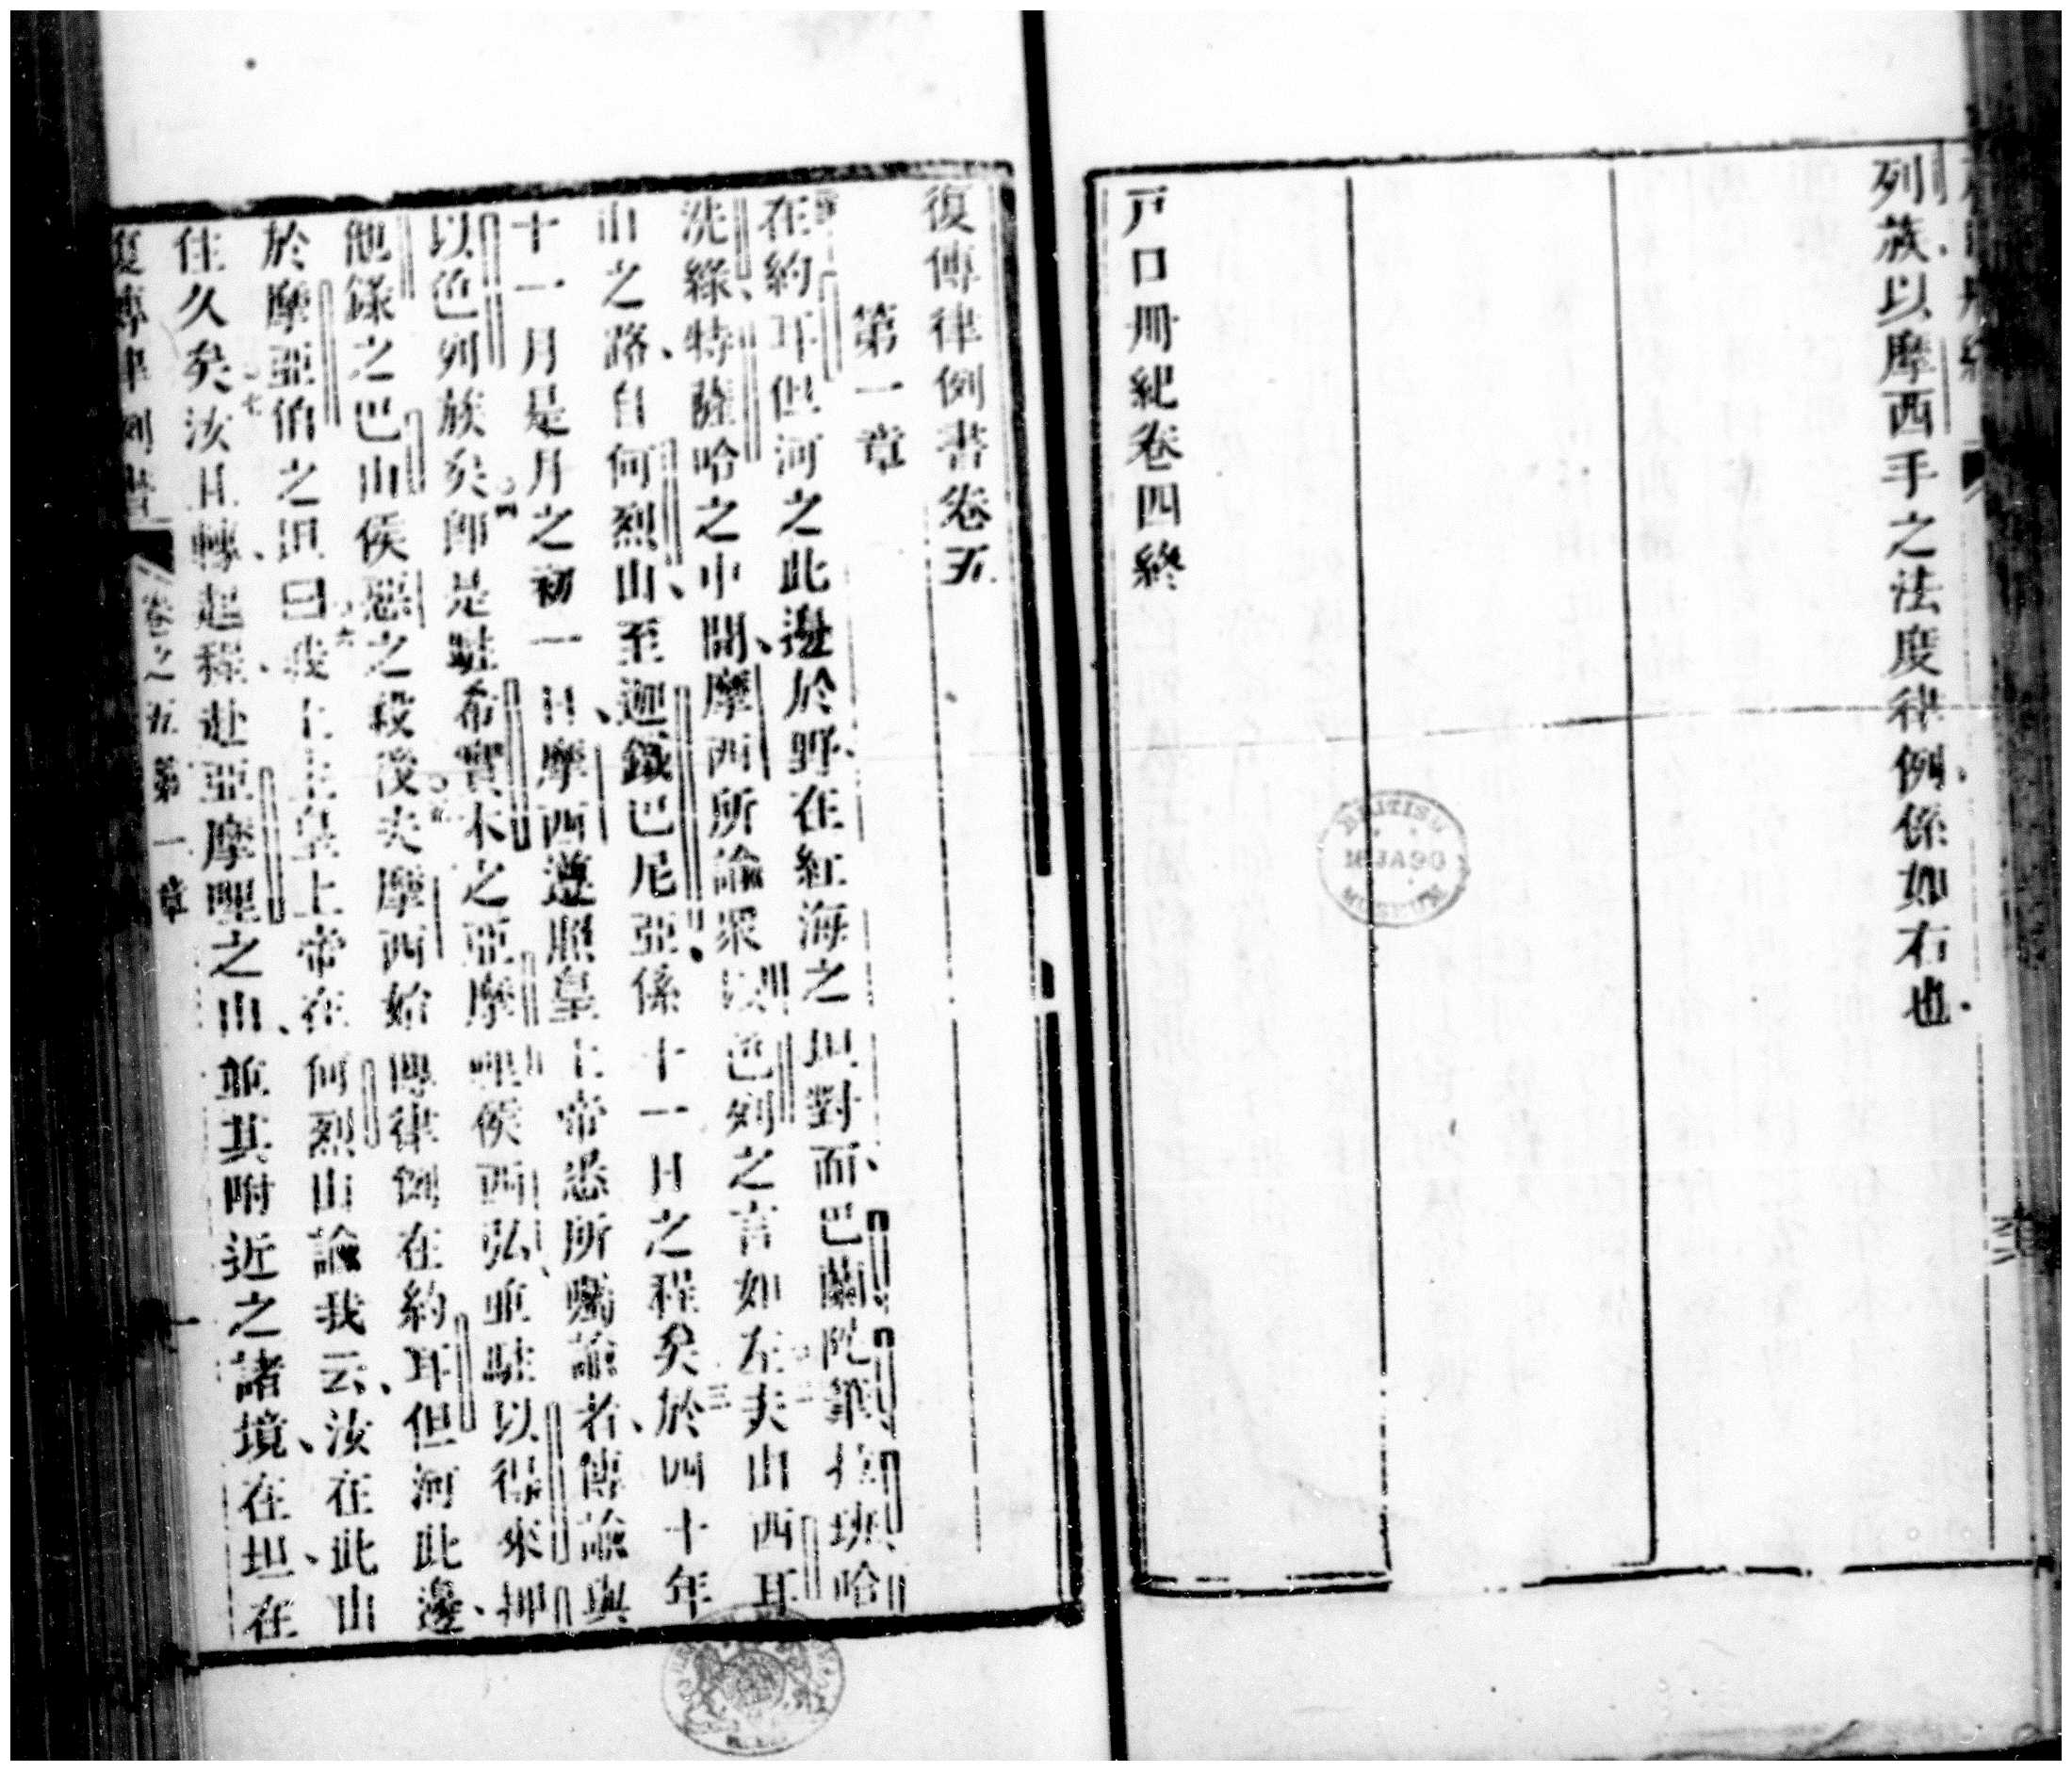 列蔟以摩西手之法度律例係如右也
戸口冊紀卷四終
BRITISH
16JA90
MUSEUM
復傳律例書卷五
第一章
在約耳但河之此邊於野在紅海之坦對面巴蘭陀 班哈
洗綠特薩哈之中間摩西所諭衆以色列之言如左二夫山西耳
山之路自何烈山至迦鉐巴尼亞係十一日之程矣三於四十年
十一月是月之初一日摩西遵照皇上帝悉所囑諭者傳諭與
以色列蔟矣四即是駐希實本之亞摩哩侯西弘並駐以得來
他錄之巴山侯惡之殺後五夫摩西始傳律例在約耳但河此邊
於摩亞伯之坦曰六我上主皇上帝在何烈山諭我云汝在此山
住久矣七汝且轉起程赴亞摩哩之山並其附近之諸境在坦在
復傳律列書 卷之五第一章 一